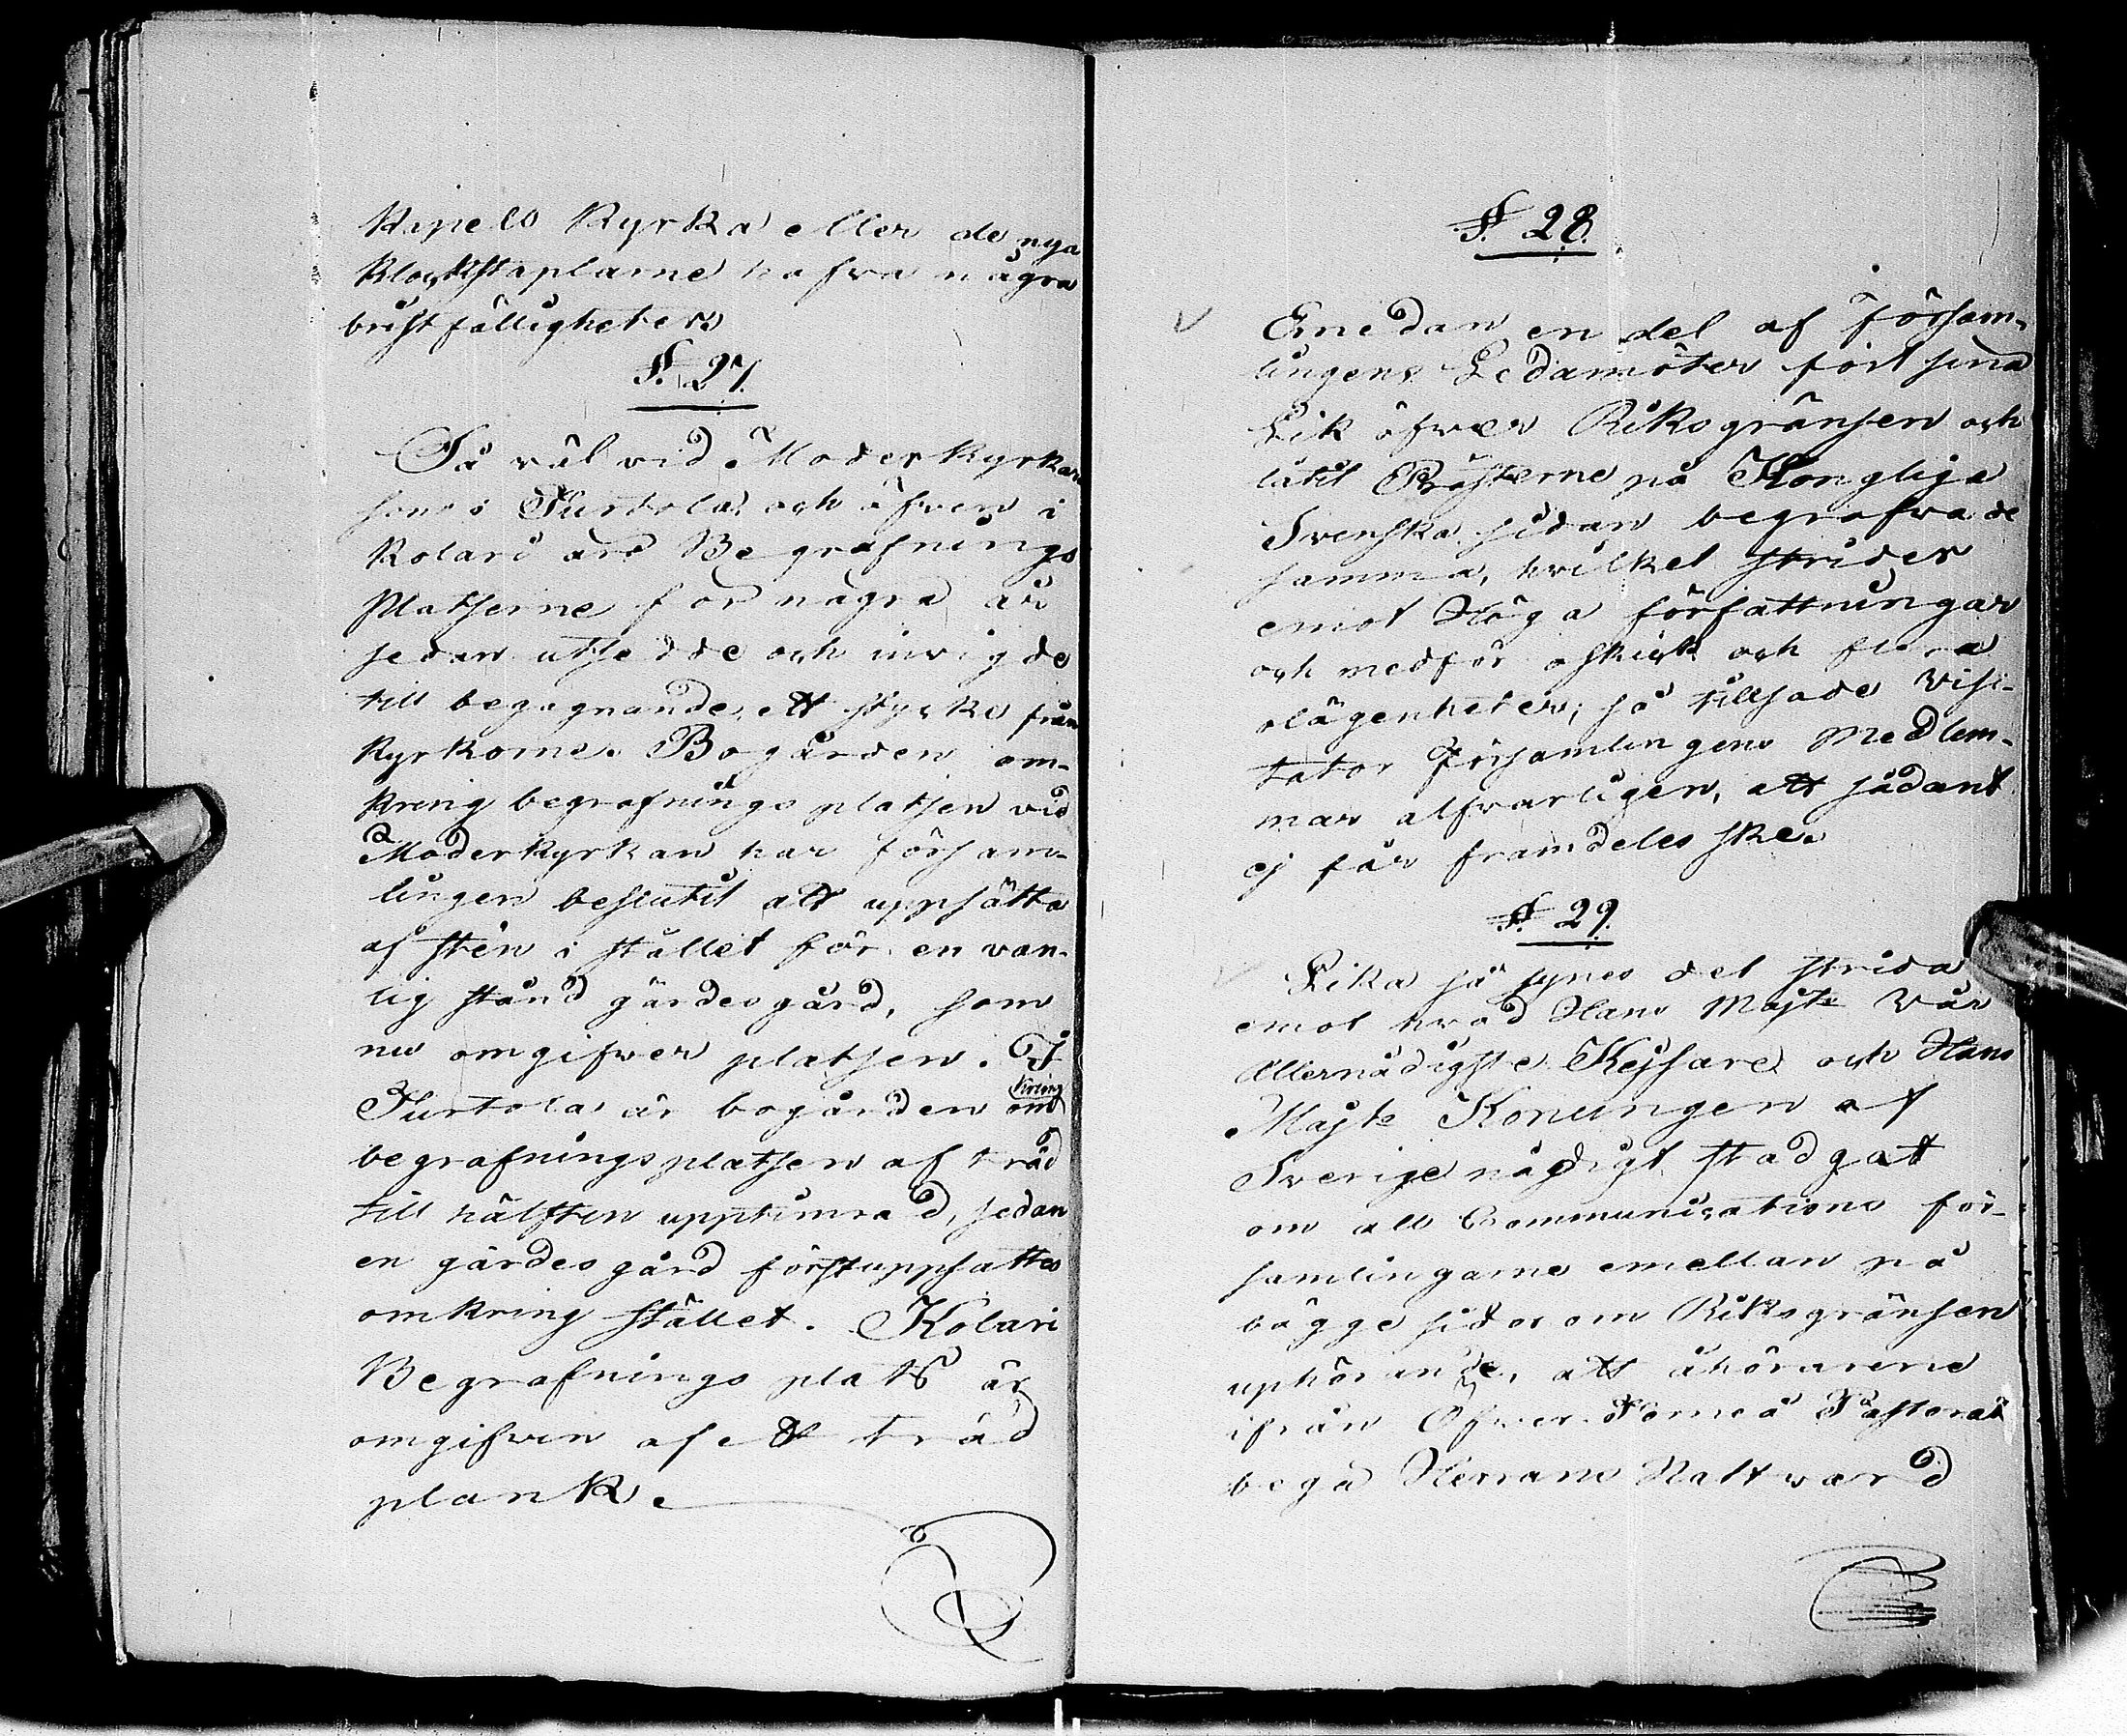 Kapels Kyrka eller de nya
Klockstaplarne hafva några
bristfälligheter.
§. 27.
Så väl vid Moderkyrkan
som i Turtola, och äfven i
Kolari äro Begrafnings
Platserne för några år
sedan utsedde och invigde
till begagnande, ett stycke från
Kyrkorne. Bogården om-
kring begrafnings platsen vid
Moderkyrkan har försam-
lingen beslutit att uppsätta
af sten i stället för en van-
lig stånd gärdesgård, som
nu omgifver platsen. I
Turtola är bogården omkring
begrafningsplatsen af träd
till hälften upptimrad, sedan
en gärdesgård först uppsattes
omkring stället. Kolari
Begrafnings plats är
omgifven af ett träd
plank.
§. 28.
Emedan en del af Försam-
lingens Ledamöter fört sina
Lik öfver Riksgränsen och
låtit Presterne på Kongliga
Svenska sidan begrafva de
samma, hvilket strider
emot Höga författningar
och medför oskick och flera
olägenheter; så tillsade Visi-
tator Församlingens Medlem-
mar alfvarligen, att sådant
ej får framdeles ske.
§. 29.
Lika så synes det strida
emot hvad Hans Majts Vår
Allernådigste Kejsare och Hans
Majts Konungen af
Sverige nådigt stadgat
om all Communications för-
samlingarne emellan på
bägge sidor om Riksgränsen
uphörande, att åhörarene
ifrån Öfver Torneå Pastorat
begå Herrans Nattvard